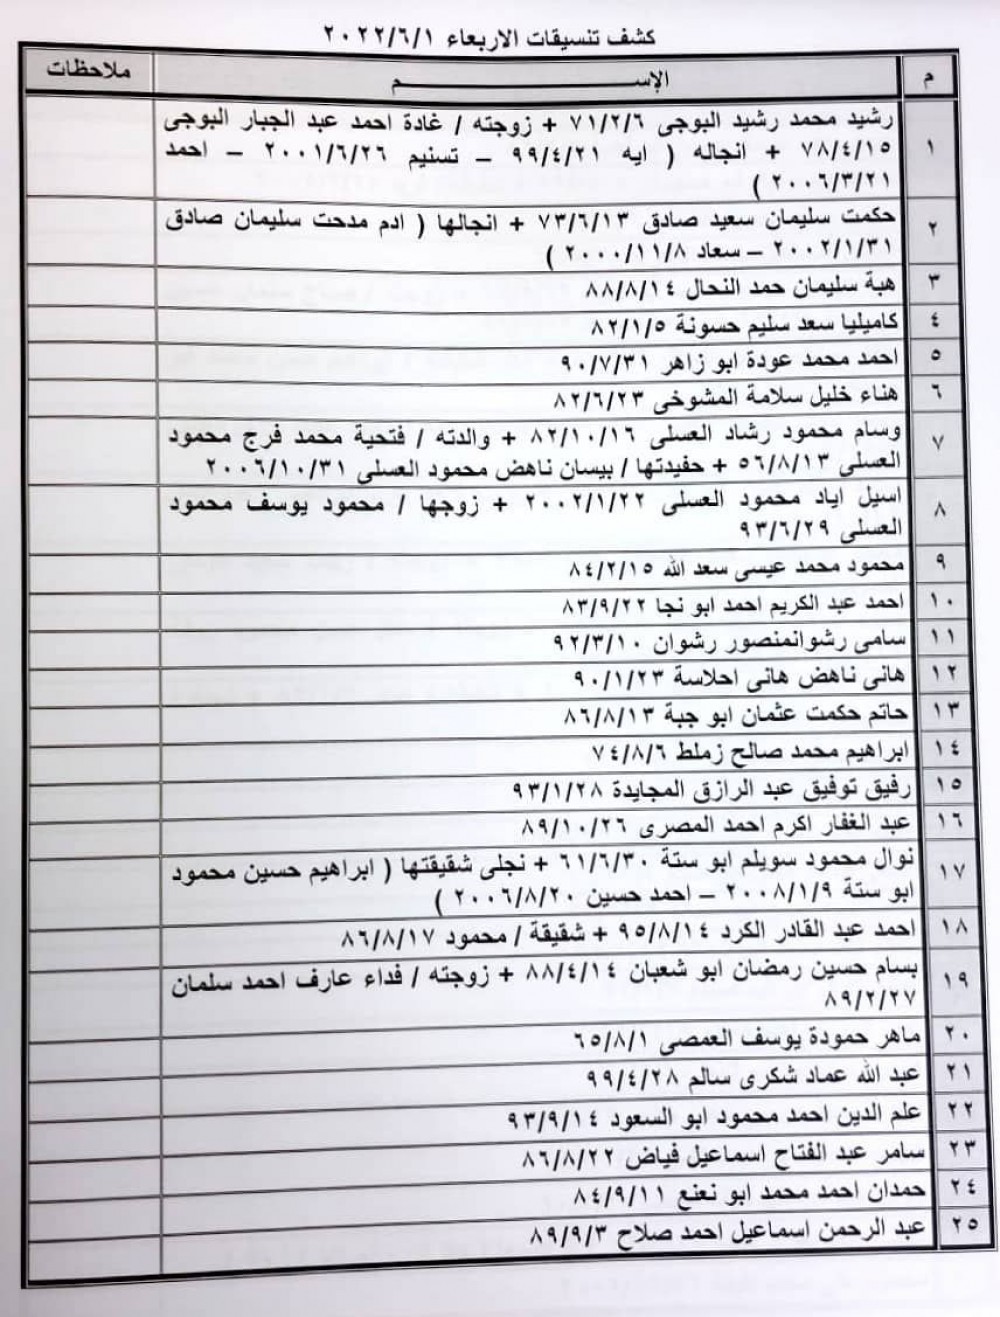 كشف تنسيقات الاربعاء ٢٠٢٢/٦/١
م الإســـــــــــم ملاحظات
١ رشيد محمد رشيد البوجى ٧١/٢/٦ + زوجته / غادة احمد عبد الجبار البوجى
٧٨/٤/١٥ + انجاله ( ايه ٩٩/٤/٢١ – تسنيم ٢٠٠١/٦/٢٦ – احمد
٢٠٠٦/٣/٢١ )
٢ حكمت سليمان سعيد صادق ٧٣/٦/١٣ + انجالها ( ادم مدحت سليمان صادق
٢٠٠٢/١/٣١ – سعاد ٢٠٠٠/١١/٨ )
٣ هبة سليمان حمد النحال ٨٨/٨/١٤
٤ كاميليا سعد سليم حسونة ٨٢/١/٥
٥ احمد محمد عودة ابو زاهر ٩٠/٧/٣١
٦ هناء خليل سلامة المشوخى ٨٢/٦/٢٣
٧ وسام محمود رشاد العسلى ٨٢/١٠/١٦ + والدته / فتحية محمد فرج محمود
العسلى ٥٦/٨/١٣ + حفيدتها / بيسان ناهض محمود العسلى ٢٠٠٦/١٠/٣١
٨ اسيل اياد محمود العسلى ٢٠٠٢/١/٢٢ + زوجها / محمود يوسف محمود
العسلى ٩٣/٦/٢٩
٩ محمود محمد عيسى سعد الله ٨٤/٢/١٥
١٠ احمد عبد الكريم احمد ابو نجا ٨٣/٩/٢٢
١١ سامى رشوانمنصور رشوان ٩٢/٣/١٠
١٢ هانى ناهض هانى احلاسة ٩٠/١/٢٣
١٣ حاتم حكمت عثمان ابو جبة ٨٦/٨/١٣
١٤ ابراهيم محمد صالح زملط ٧٤/٨/٦
١٥ رفيق توفيق عبد الرازق المجايدة ٩٣/١/٢٨
١٦ عبد الغفار اكرم احمد المصرى ٨٩/١٠/٢٦
١٧ نوال محمود سويلم ابو ستة ٦١/٦/٣٠ + نجلى شقيقتها ( ابراهيم حسين محمود
ابو ستة ٢٠٠٨/١/٩ – احمد حسين ٢٠٠٦/٨/٢٠ )
١٨ احمد عبد القادر الكرد ٩٥/٨/١٤ + شقيقة / محمود ٨٦/٨/١٧
١٩ بسام حسين رمضان ابو شعبان ٨٨/٤/١٤ + زوجته / فداء عارف احمد سلمان
٨٩/٢/٢٧
٢٠ ماهر حمودة يوسف العمصى ٦٥/٨/١
٢١ عبد الله عماد شكرى سالم ٩٩/٤/٢٨
٢٢ علم الدين احمد محمود ابو السعود ٩٣/٩/١٤
٢٣ سامر عبد الفتاح اسماعيل فياض ٨٦/٨/٢٢
٢٤ حمدان احمد محمد ابو نعنع ٨٤/٩/١١
٢٥ عبد الرحمن اسماعيل احمد صلاح ٨٩/٩/٣